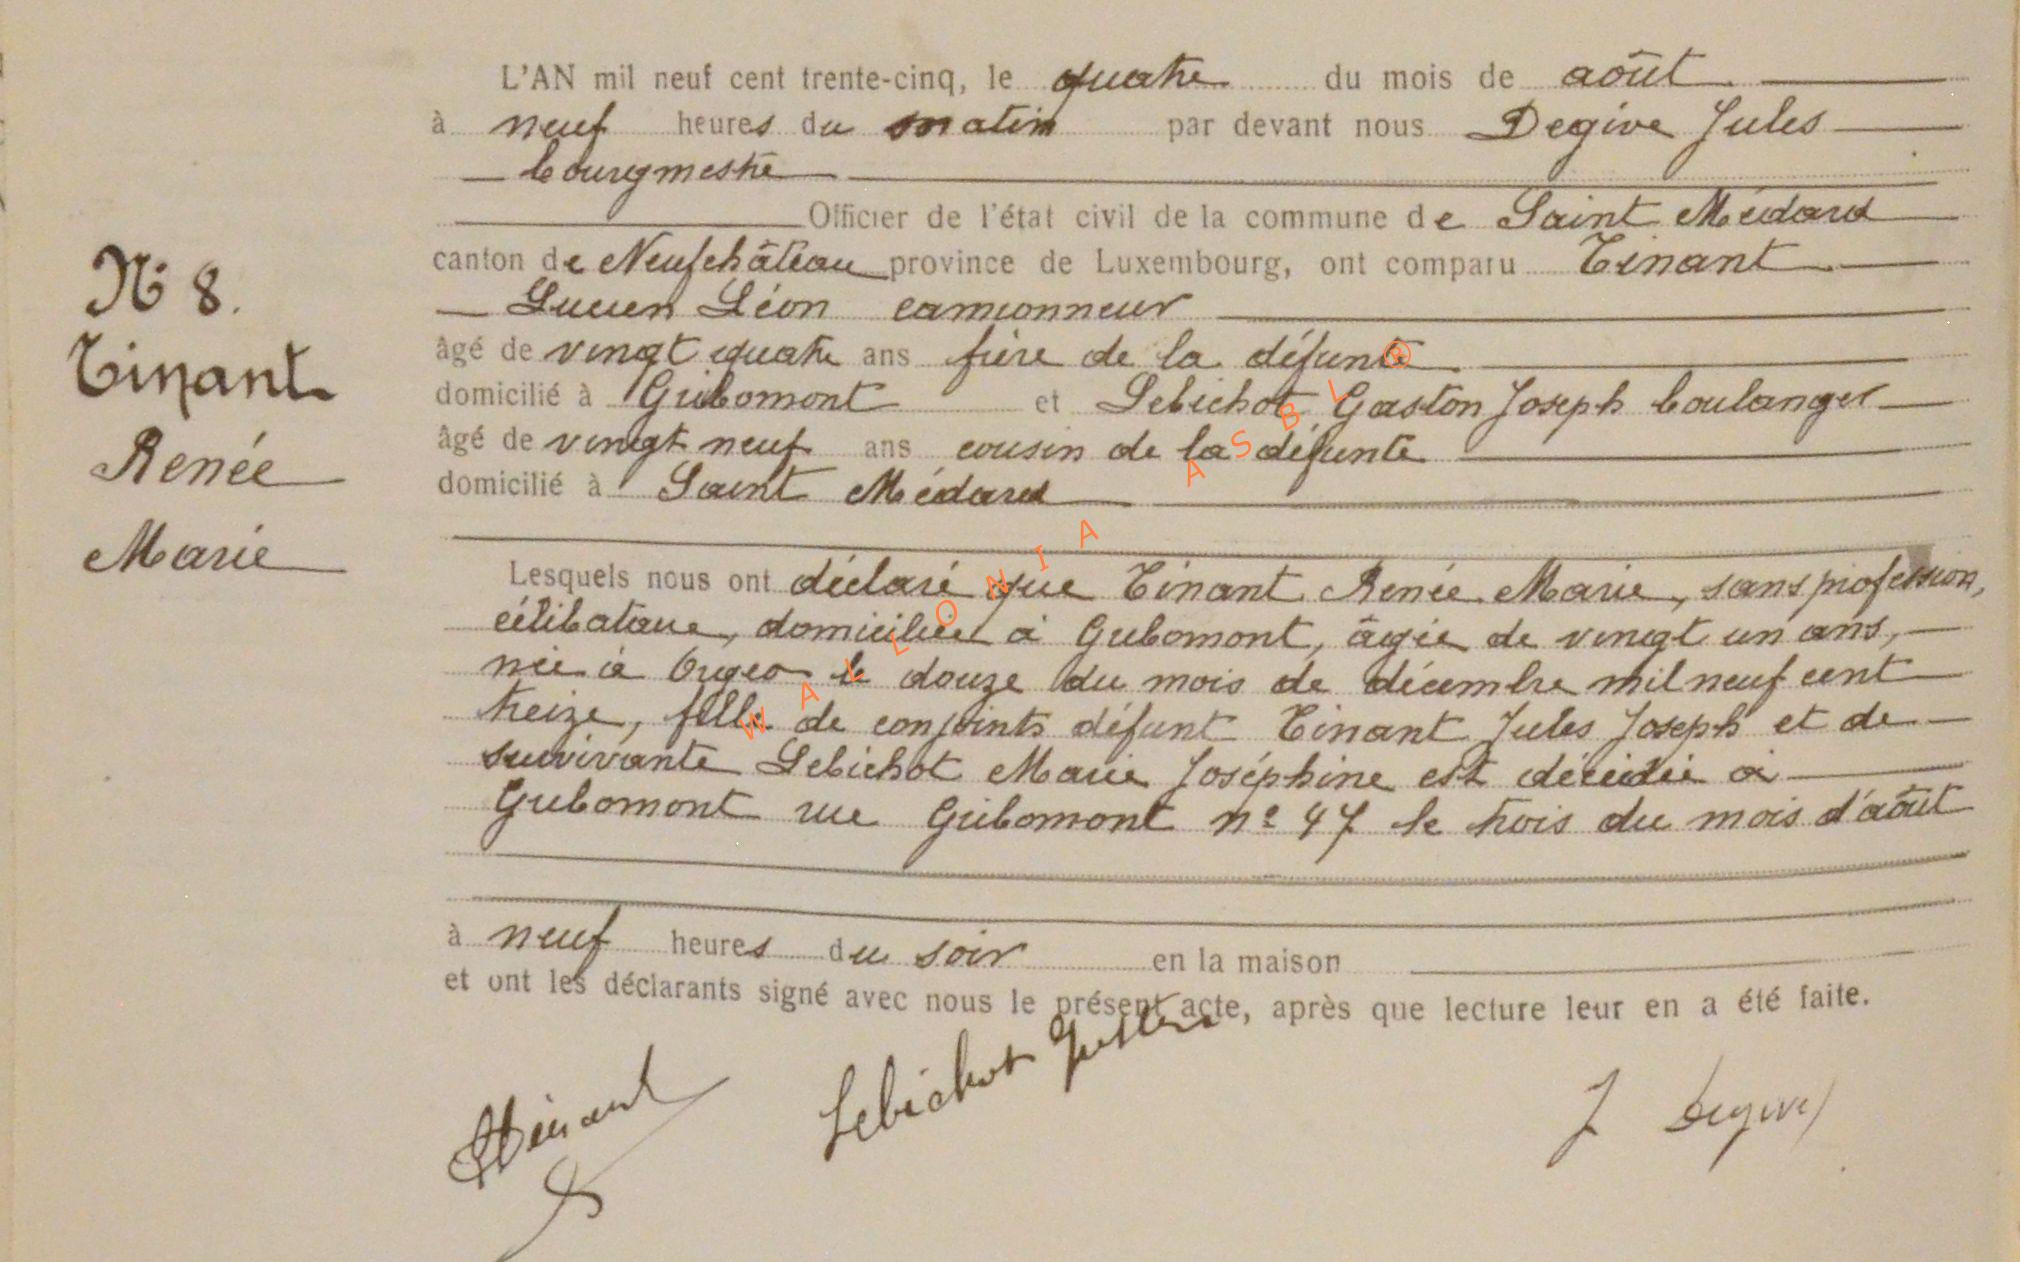 L'AN mil neuf cent trente-cinq, le quatre du mois de août
à neuf heures du matin par devant nous Degive Jules
bourgmestre
Officier de l'état civil de la commune de Saint Médard
canton de Neufchâteau province de Luxembourg, ont comparu Tinant
Lucien Léon camionneur
âgé de vingt quatre ans frère de la défunte
domicilié à Gribomont et Lebichot Gaston Joseph boulanger
âgé de vingt neuf ans cousin de la défunte
domicilié à Saint Médard
N° 8.
Tinant
Renée
Marie
Lesquels nous ont déclaré que Tinant Renée Marie, sans profession,
célibataire, domiciliée à Gribomont, âgée de vingt un ans,
née à Orgeo le douze du mois de décembre mil neuf cent
treize, fille de conjoints défunt Tinant Jules Joseph et de
survivante Lebichot Marie Joséphine est décédée à
Gribomont rue Gribomont n° 47 le trois du mois d'août
à neuf heures du soir en la maison
et ont les déclarants signé avec nous le présent acte, après que lecture leur en a été faite.
Tinant
Lebichot Gaston
J Degive
WALLONIA ASBL ®